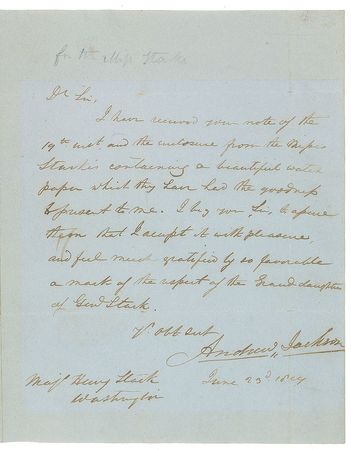 for the Miss Starks
Dr Sir,
I have received your note of the
19th inst and the enclosure from the Misses
Starks containing a beautiful watch
paper which they have had the goodness
to present to me. I beg you, Sir, to assure
them that I accept it with pleasure,
and feel much gratified by so favorable
a mark of the respect of the Grand daughters
of Genl Stark.
Yr obt svt
Andrew Jackson
Majr Henry Stark
Washington
June 23d